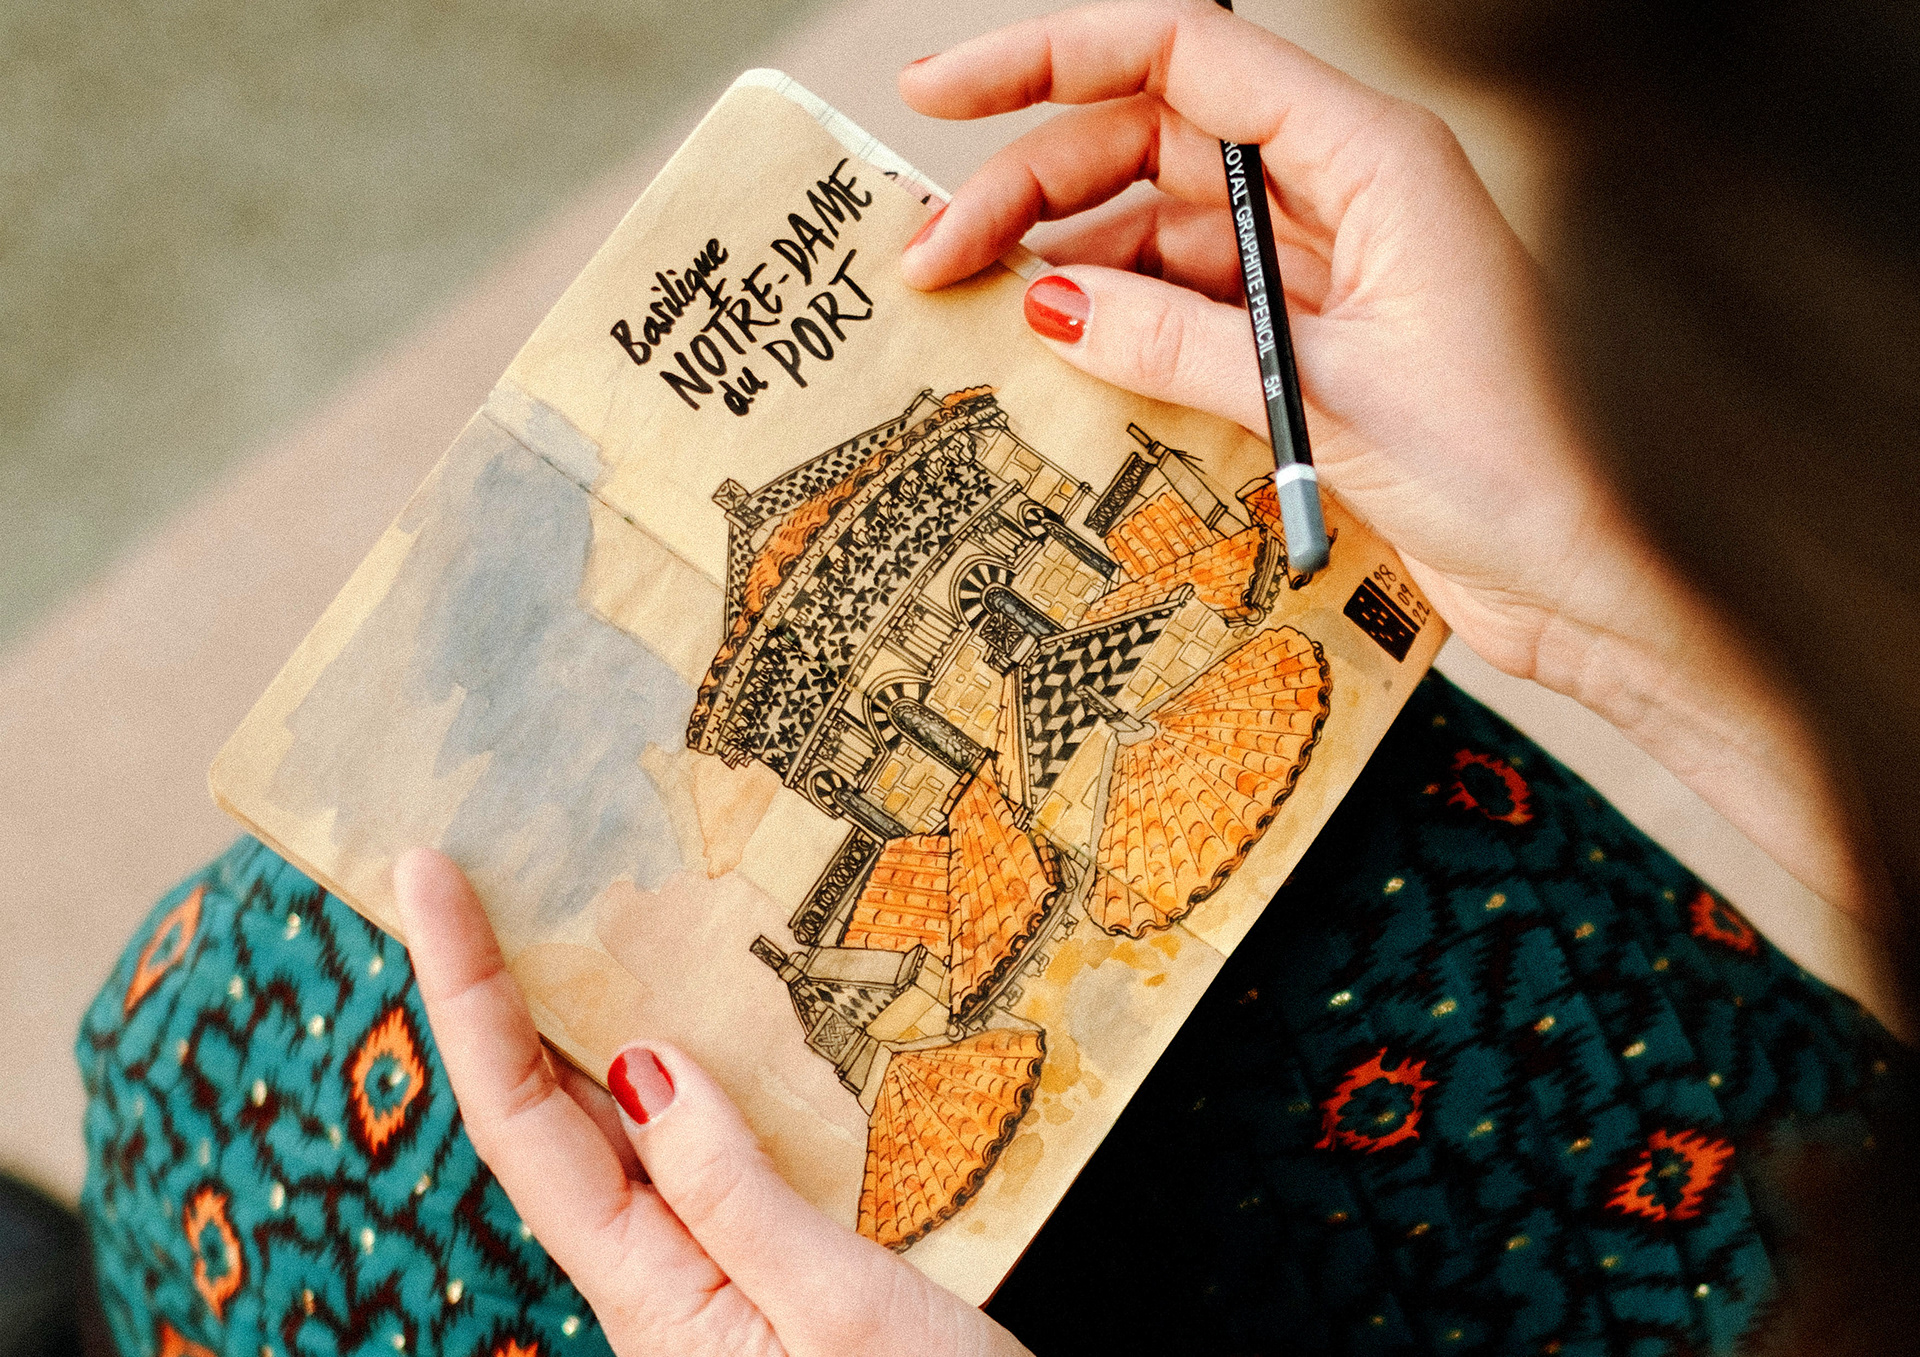 Basilique
NOTRE-DAME
du PORT
28
09
22
ROYAL GRAPHITE PENCIL 5H